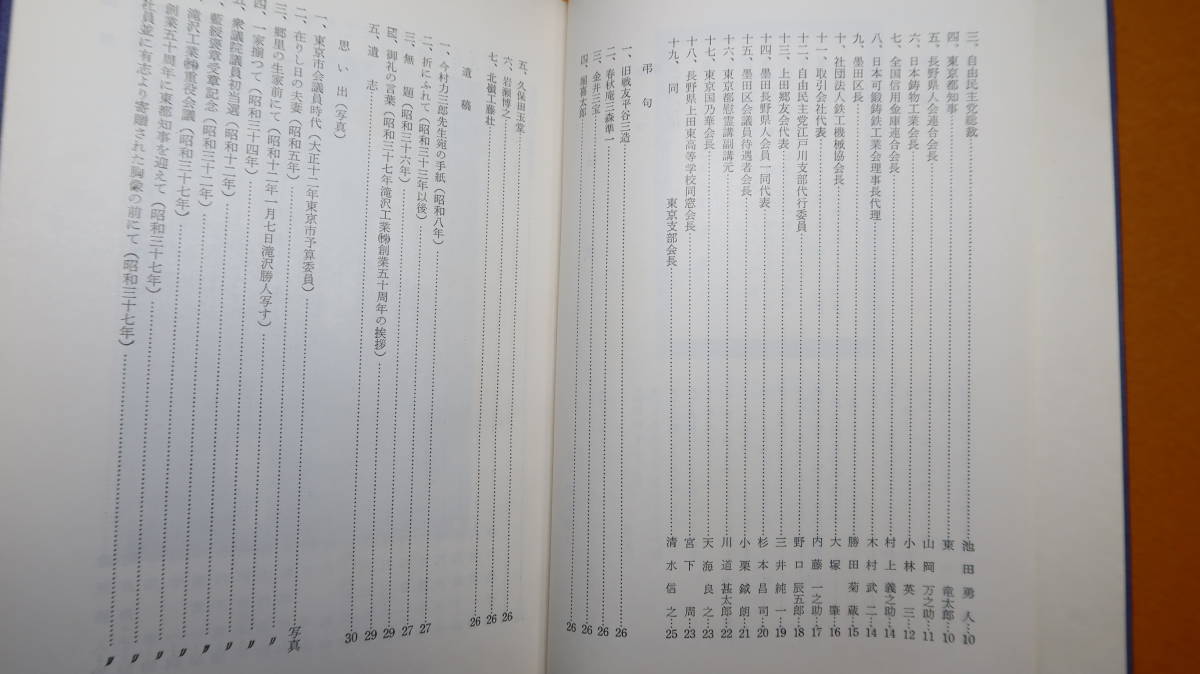 三、自由民主党総裁 池田勇人 10
四、東京都知事 東竜太郎 10
五、長野県人会連合会長 山岡万之助 11
六、日本鋳物工業会長 小林英三 12
七、全国信用金庫連合会長 村上義之助 14
八、日本可鍛鋳鉄工業会理事長代理 木村武二 14
九、墨田区長 勝田菊蔵 15
十、社団法人鉄工機械協会長 大塚肇 16
十一、取引会社代表 内藤一之助 17
十二、自由民主党江戸川支部代行委員 野口辰五郎 18
十三、上田郷友会代表 三井純一 19
十四、墨田長野県人会員一同代表 杉本昌司 20
十五、墨田区会議員待遇者会長 小栗鉞朗 21
十六、東京都慰霊講副講元 川道甚太郎 22
十七、東京国乃華会長 天海良之 23
十八、長野県上田東高等学校同窓会長 宮下周 23
十九、同 東京支部会長 清水信之 25
弔句
一、旧戦友平谷三造 26
二、春秋庵三森準一 26
三、金井三宝 26
四、堀喜太郎 26
五、久保田玉堂 26
六、岩瀬博之 26
七、北嶺工藤壮 26
遺稿
一、今村力三郎先生宛の手紙（昭和八年） 27
二、折にふれて（昭和三十三年以後） 27
三、無題（昭和三十六年） 29
四、御礼の言葉（昭和三十七年滝沢工業㈱創業五十周年の挨拶） 29
五、遺志 30
思い出（写真）
一、東京市会議員時代（大正十二年東京市予算委員） 写真
二、在りし日の夫妻（昭和五年） 〃
三、郷里の生家前にて（昭和十二年一月七日滝沢勝人写す） 〃
四、一家揃つて（昭和三十四年） 〃
五、衆議院議員初当選（昭和十二年） 〃
藍綬褒章受章記念（昭和三十二年） 〃
滝沢工業㈱重役会議（昭和三十七年） 〃
創業五十周年に東都知事を迎えて（昭和三十七年） 〃
社員並に有志より寄贈された胸像の前にて（昭和三十七年） 〃